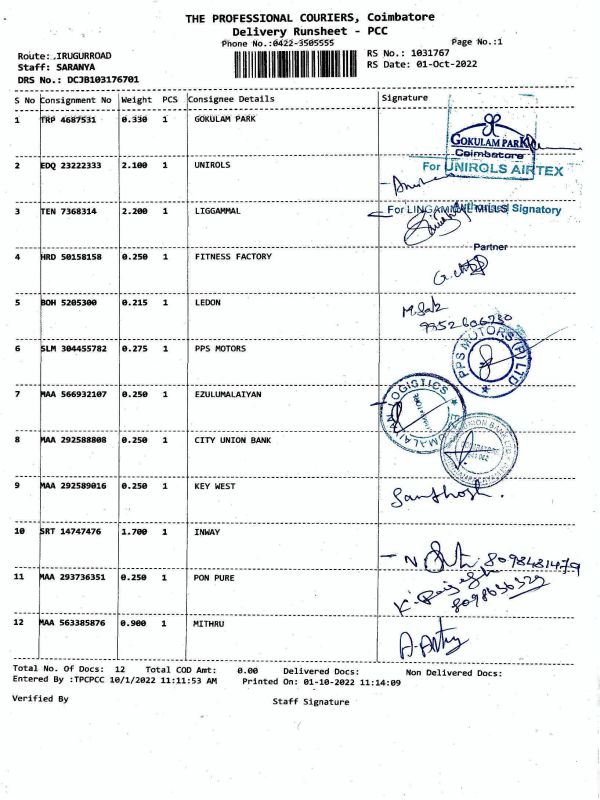 THE PROFESSIONAL COURIERS, Coimbatore
Delivery Runsheet - PCC
Phone No.:0422-3505555
Page No.:1
Route: .IRUGURROAD
RS No.: 1031767
Staff: SARANYA
RS Date: 01-Oct-2022
DRS No.: DCJB103176701
S No Consignment No Weight PCS Consignee Details Signature
1 TRP 4687531 0.330 1 GOKULAM PARK
GOKULAM PARK
Coimbatore
2 EDQ 23222333 2.100 1 UNIROLS
For UNIROLS AIRTEX
3 TEN 7368314 2.200 1 LIGGAMMAL
For LINGAMMAL MILLS
Authorised Signatory
Partner
4 HRD 50158158 0.250 1 FITNESS FACTORY
5 BOH 5205300 0.215 1 LEDON
9952606730
6 SLM 304455782 0.275 1 PPS MOTORS
PPS MOTORS (P) LTD
7 MAA 566932107 0.250 1 EZULUMALAIYAN
LOGISTICS
8 MAA 292588808 0.250 1 CITY UNION BANK
UNION BANK LTD
9 MAA 292589016 0.250 1 KEY WEST
Santhosh.
10 SRT 14747476 1.700 1 INWAY
8098481479
11 MAA 293736351 0.250 1 PON PURE
8098636329
12 MAA 563385876 0.900 1 MITHRU
Total No. Of Docs: 12 Total COD Amt: 0.00 Delivered Docs: Non Delivered Docs:
Entered By :TPCPCC 10/1/2022 11:11:53 AM Printed On: 01-10-2022 11:14:09
Verified By
Staff Signature